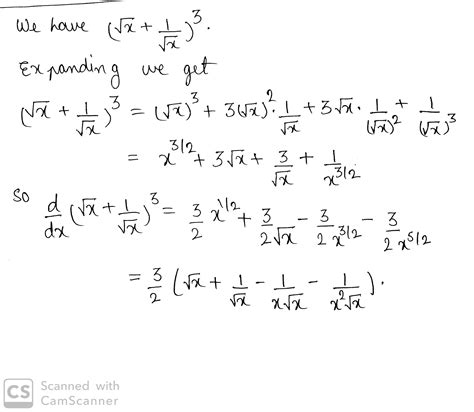 We have (√x + 1/√x)^3.
Expanding we get
(√x + 1/√x)^3 = (√x)^3 + 3(√x)^2 · 1/√x + 3√x · 1/(√x)^2 + 1/(√x)^3
= x^3/2 + 3√x + 3/√x + 1/x^3/2.
So d/dx (√x + 1/√x)^3 = 3/2 x^1/2 + 3/2√x − 3/2 x^3/2 − 3/2 x^5/2
= 3/2 (√x + 1/√x − 1/x√x − 1/x^2√x).
CS Scanned with
CamScanner